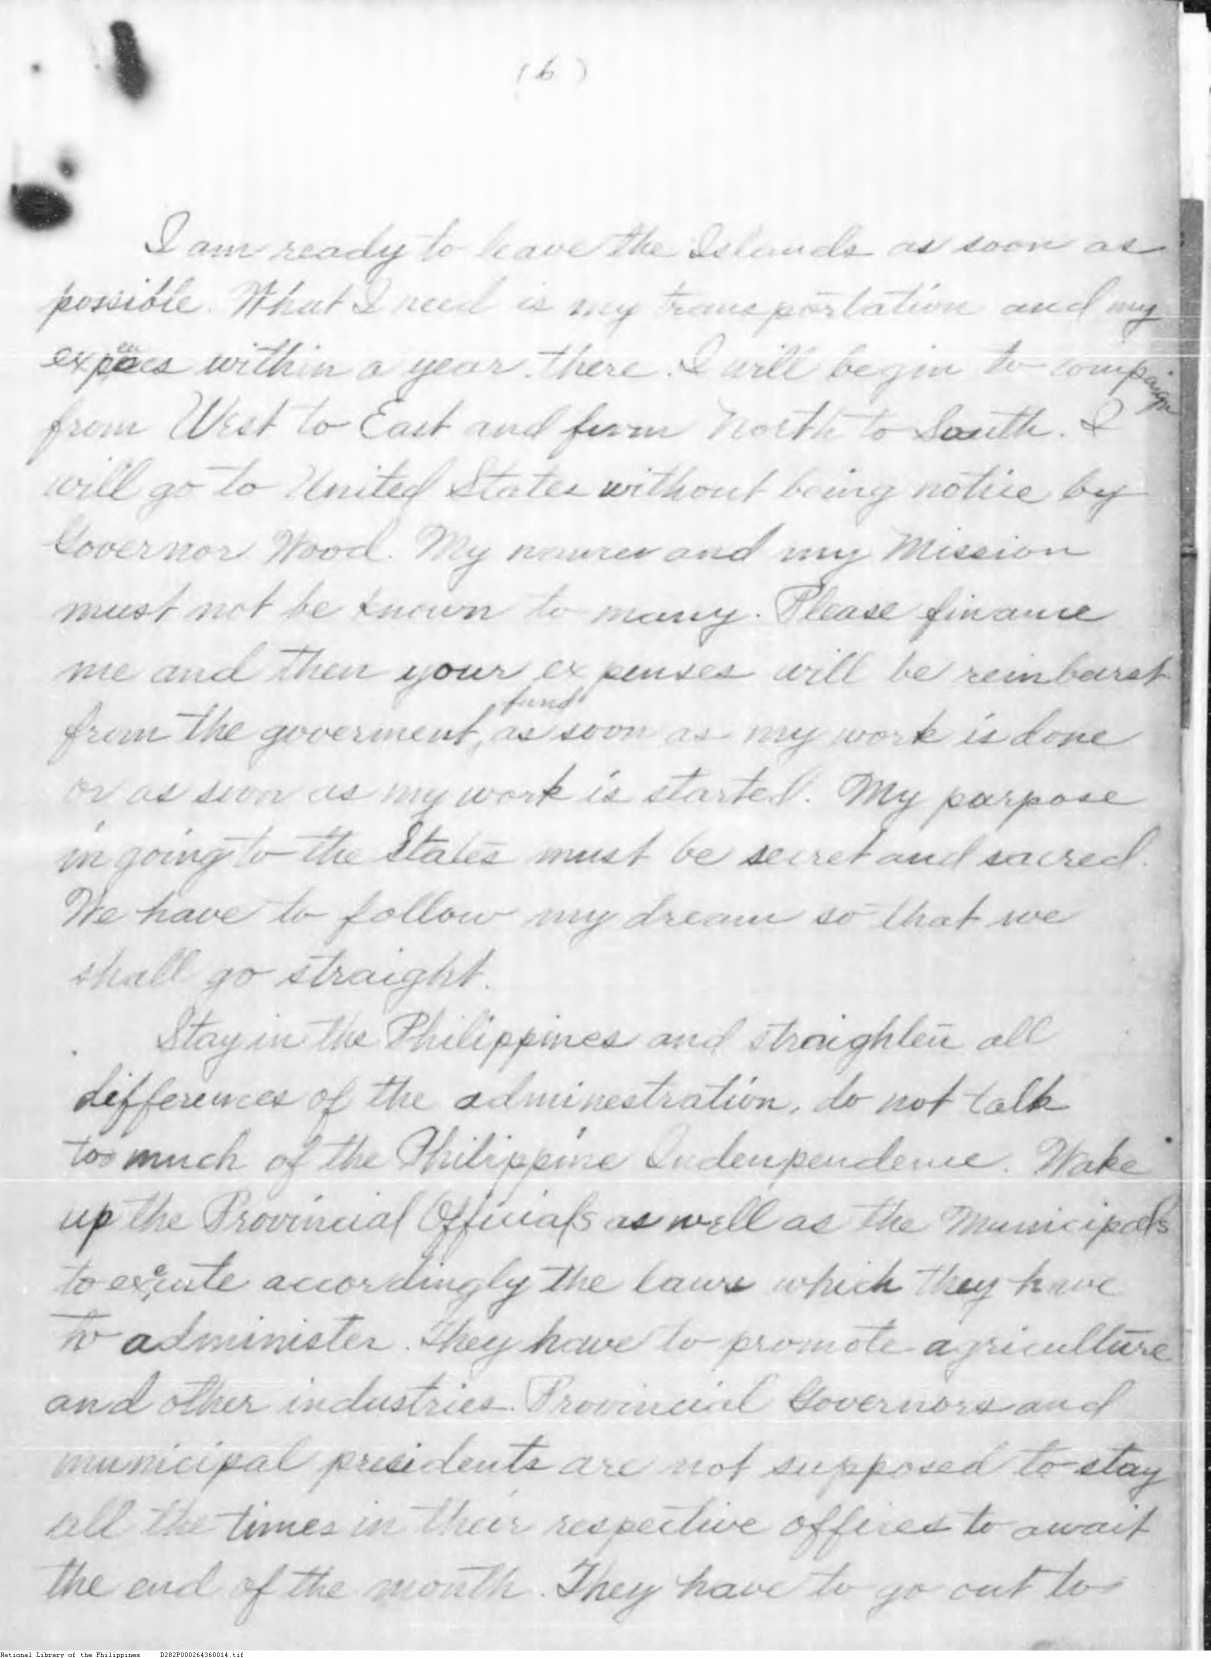 (6)
I am ready to leave the Islands as soon as
possible. What I need is my transportation and my
expences within a year there. I will begin to compaign
from West to East and from North to South. I
will go to United States without being notice by
Governor Wood. My name and my Mission
must not be known to many. Please finance
me and then your expenses will be reimburst
from the goverment fund, as soon as my work is done
or as soon as my work is started. My purpose
in going to the States must be secret and sacred.
We have to follow my dream so that we
shall go straight.
Stay in the Philippines and straighten all
differences of the adminestration, do not talk
too much of the Philippine Indenpendence. Wake
up the Provincial Officials as well as the Municipals
to execute accordingly the laws which they have
to administer. They have to promote agriculture
and other industries. Provincial Governors and
municipal presidents are not supposed to stay
all the times in their respective offices to await
the end of the month. They have to go out to
National Library of the Philippines D282P000264360014.tif